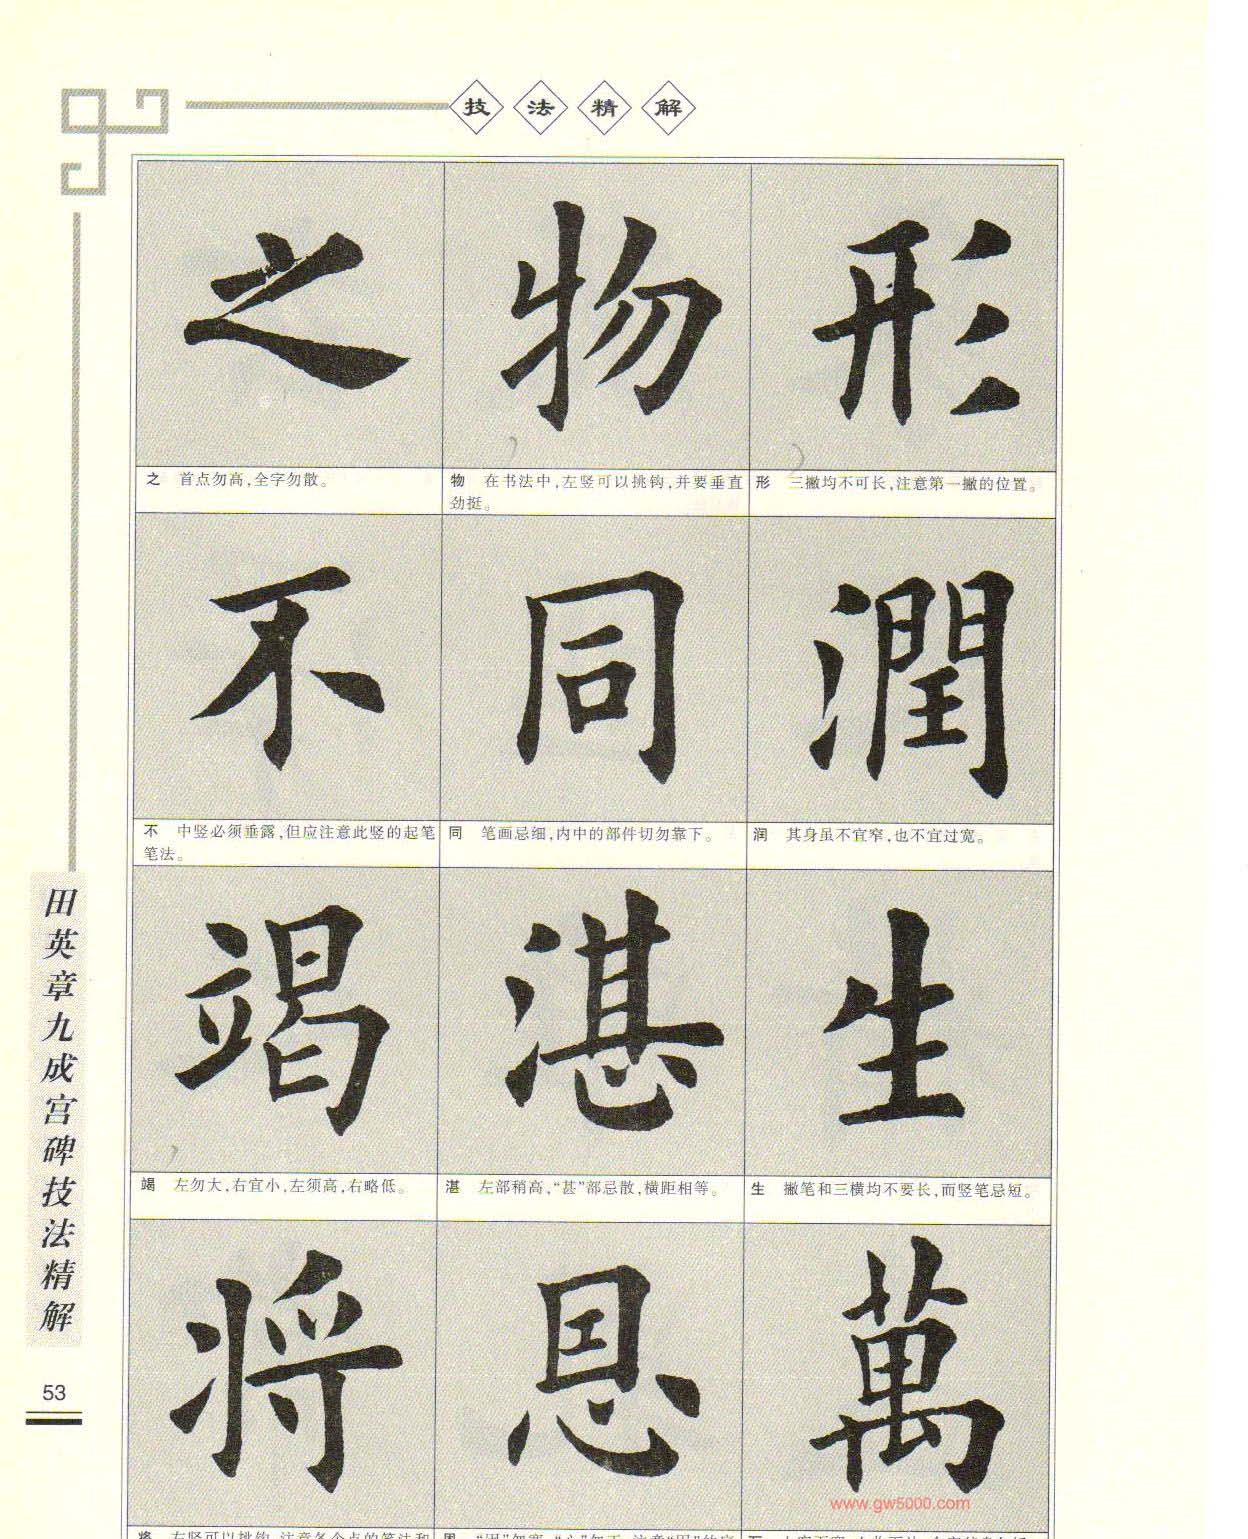 技法精解
之 物 形
之 首点勿高,全字勿散。
物 在书法中,左竖可以挑钩,并要垂直
劲挺。
形 三撇均不可长,注意第一撇的位置。
不 同 潤
不 中竖必须垂露,但应注意此竖的起笔
笔法。
同 笔画忌细,内中的部件切勿靠下。
润 其身虽不宜窄,也不宜过宽。
竭 湛 生
竭 左勿大,右宜小,左须高,右略低。
湛 左部稍高,“甚”部忌散,横距相等。
生 撇笔和三横均不要长,而竖笔忌短。
将 恩 萬
www.gw5000.com
将 左竖可以挑钩,注意各个点的笔法和
田英章九成宫碑技法精解
53